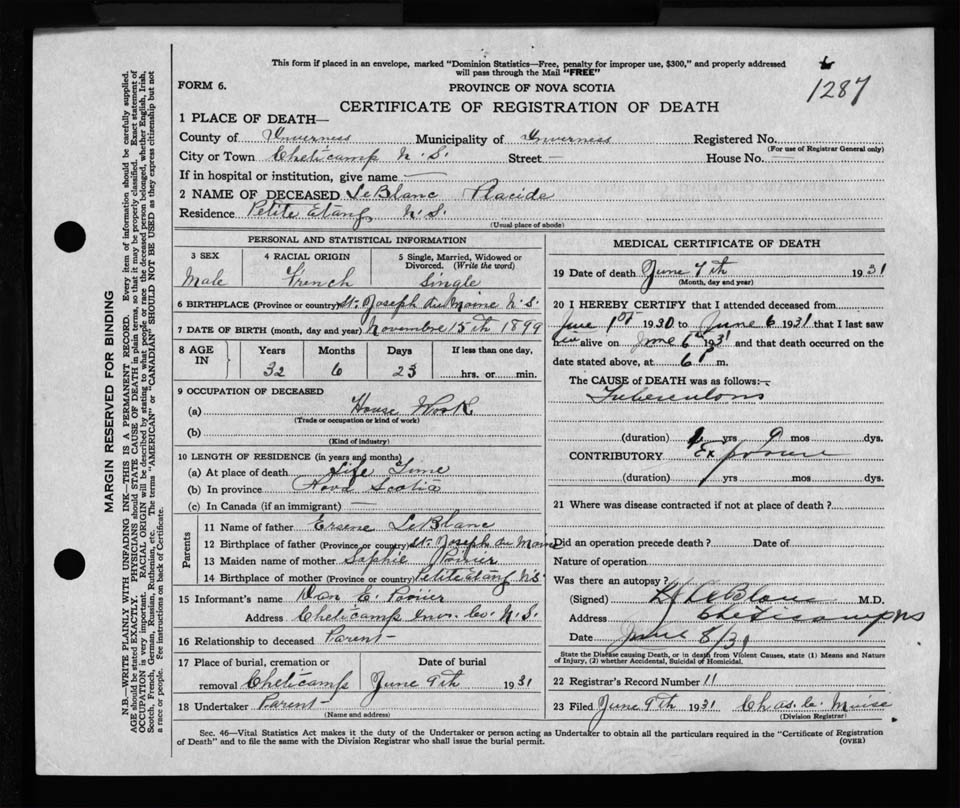 This form if placed in an envelope, marked "Dominion Statistics—Free, penalty for improper use, $300," and properly addressed
will pass through the Mail "FREE"
1287
FORM 6.
PROVINCE OF NOVA SCOTIA
CERTIFICATE OF REGISTRATION OF DEATH
1 PLACE OF DEATH—
County of Inverness Municipality of Inverness Registered No.
(For use of Registrar General only)
City or Town Cheticamp N.S. Street — House No. —
If in hospital or institution, give name —
2 NAME OF DECEASED LeBlanc Placide
Residence Petite Etang N.S.
(Usual place of abode)
PERSONAL AND STATISTICAL INFORMATION
3 SEX
Male
4 RACIAL ORIGIN
French
5 Single, Married, Widowed or
Divorced. (Write the word)
Single
6 BIRTHPLACE (Province or country) St. Joseph du Moine N.S.
7 DATE OF BIRTH (month, day and year) Novembre 15th 1899
8 AGE IN
Years Months Days If less than one day,
32 6 23 hrs. or min.
9 OCCUPATION OF DECEASED
(a) House Work
(Trade or occupation or kind of work)
(b)
(Kind of industry)
10 LENGTH OF RESIDENCE (in years and months)
(a) At place of death Life Time
(b) In province Nova Scotia
(c) In Canada (if an immigrant) —
Parents
11 Name of father Ersene LeBlanc
12 Birthplace of father (Province or country) St. Joseph du Moine
13 Maiden name of mother Sophie Poirier
14 Birthplace of mother (Province or country) Petite Etang N.S.
15 Informant's name Dan E. Poirier
Address Cheticamp Inv. Co. N.S.
16 Relationship to deceased Parent
17 Place of burial, cremation or Date of burial
removal Cheticamp June 9th 1931
18 Undertaker Parent
(Name and address)
MEDICAL CERTIFICATE OF DEATH
19 Date of death June 7th 1931
(Month, day and year)
20 I HEREBY CERTIFY that I attended deceased from
June 1st 1930 to June 6 1931 that I last saw
alive on June 6th 1931 and that death occurred on the
date stated above, at 6 P m.
The CAUSE of DEATH was as follows:—
Tuberculosis
(duration) yrs 9 mos dys.
CONTRIBUTORY Exposure
(duration) yrs mos dys.
21 Where was disease contracted if not at place of death?
Did an operation precede death? Date of
Nature of operation
Was there an autopsy?
(Signed) LeBlanc M.D.
Address Cheticamp NS
Date June 8/31
State the Disease causing Death, or in death from Violent Causes, state (1) Means and Nature
of Injury, (2) whether Accidental, Suicidal of Homicidal.
22 Registrar's Record Number 11
23 Filed June 9th 1931 Chas. 
(Division Registrar)
Sec. 46—Vital Statistics Act makes it the duty of the Undertaker or person acting as Undertaker to obtain all the particulars required in the "Certificate of Registration
of Death" and to file the same with the Division Registrar who shall issue the burial permit.
(OVER)
MARGIN RESERVED FOR BINDING
N.B.—WRITE PLAINLY WITH UNFADING INK—THIS IS A PERMANENT RECORD. Every item of information should be carefully supplied.
AGE should be stated EXACTLY. PHYSICIANS should STATE CAUSE OF DEATH in plain terms, so that it may be properly classified. Exact statement of
OCCUPATION is very important. RACIAL ORIGIN will be described by stating to what people or race the deceased person belonged, whether English, Irish,
Scotch, French, German, Russian, Ruthenian, etc. The terms "AMERICAN" or "CANADIAN" SHOULD NOT BE USED as they express citizenship but not
a race or people. See instructions on back of Certificate.